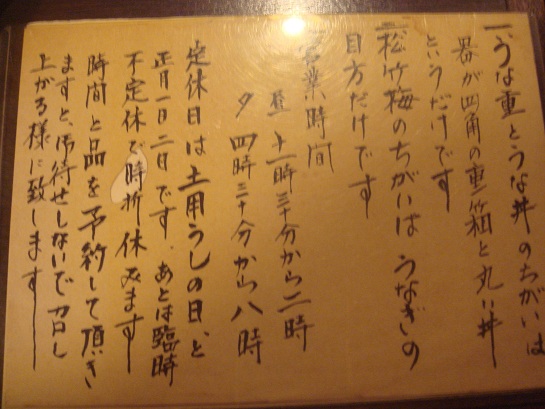 一、うな重とうな丼のちがいは
器が四角の重箱と丸い丼
というだけです
二、松竹梅のちがいは うなぎの
目方だけです
営業時間
昼 十一時三十分から二時
夕 四時三十分から八時
定休日は土用うしの日、と
正月一日二日です、あとは臨時
不定休で時折休みます
時間と品を予約して頂き
ますと、お待せしないでお召し
上がる様に致します